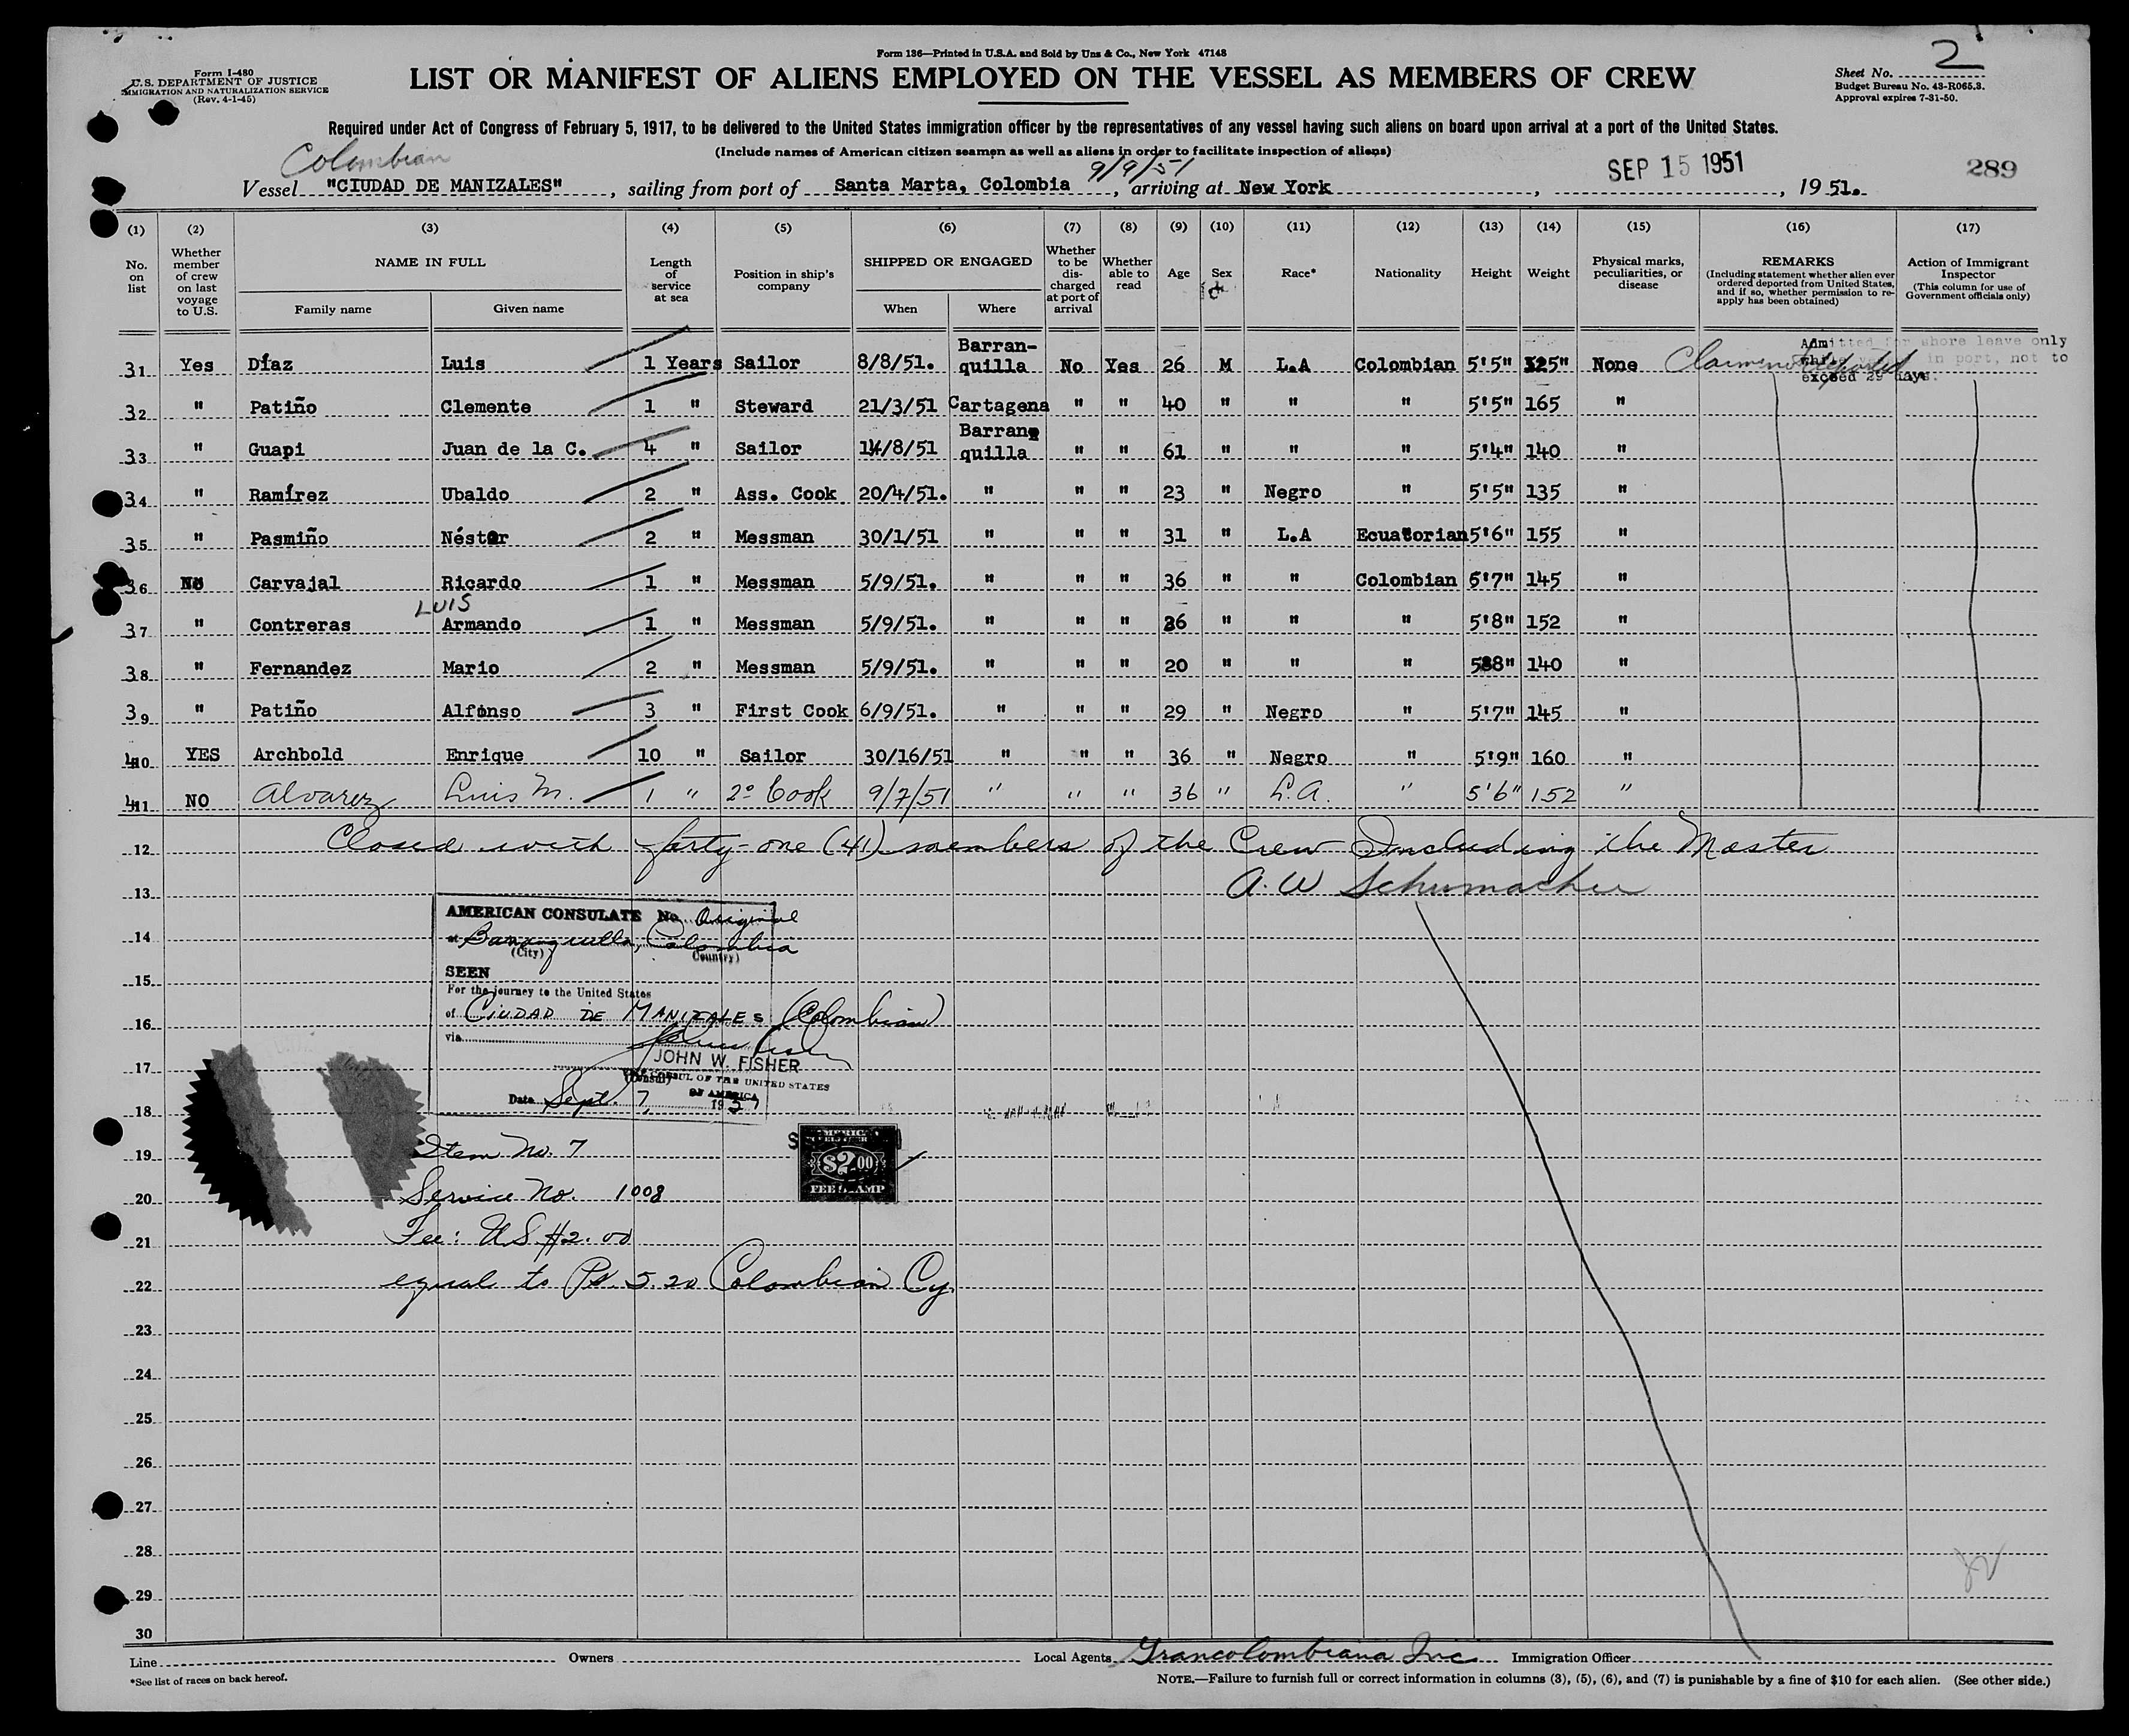 Form 136—Printed in U.S.A. and Sold by Unz & Co., New York 47148
Form I-480
U.S. DEPARTMENT OF JUSTICE
IMMIGRATION AND NATURALIZATION SERVICE
(Rev. 4-1-45)
LIST OR MANIFEST OF ALIENS EMPLOYED ON THE VESSEL AS MEMBERS OF CREW
Sheet No. 2
Budget Bureau No. 43-R065.3.
Approval expires 7-31-50.
Required under Act of Congress of February 5, 1917, to be delivered to the United States immigration officer by the representatives of any vessel having such aliens on board upon arrival at a port of the United States.
(Include names of American citizen seamen as well as aliens in order to facilitate inspection of aliens)
Colombian 9/9/51 SEP 15 1951 289
Vessel "CIUDAD DE MANIZALES", sailing from port of Santa Marta, Colombia, arriving at New York, , 1951.
(1) (2) (3) (4) (5) (6) (7) (8) (9) (10) (11) (12) (13) (14) (15) (16) (17)
No. on list
Whether member of crew on last voyage to U.S.
NAME IN FULL
Family name Given name
Length of service at sea
Position in ship's company
SHIPPED OR ENGAGED
When Where
Whether to be discharged at port of arrival
Whether able to read
Age
Sex
Race*
Nationality
Height
Weight
Physical marks, peculiarities, or disease
REMARKS
(Including statement whether alien ever ordered deported from United States, and if so, whether permission to re-apply has been obtained)
Action of Immigrant Inspector
(This column for use of Government officials only)
Admitted for shore leave only
while vessel in port, not to
exceed 29 days.
31 Yes Díaz Luis 1 Years Sailor 8/8/51. Barran-quilla No Yes 26 M L.A Colombian 5'5" 125" None
32 " Patiño Clemente 1 " Steward 21/3/51 Cartagena " " 40 " " " 5'5" 165 "
33 " Guapi Juan de la C. 4 " Sailor 14/8/51 Barran-quilla " " 61 " " " 5'4" 140 "
34 " Ramírez Ubaldo 2 " Ass. Cook 20/4/51. " " " 23 " Negro " 5'5" 135 "
35 " Pasmiño Néstor 2 " Messman 30/1/51 " " " 31 " L.A Ecuatorian 5'6" 155 "
36 No Carvajal Ricardo 1 " Messman 5/9/51. " " " 36 " " Colombian 5'7" 145 "
37 " Contreras LUIS Armando 1 " Messman 5/9/51. " " " 26 " " " 5'8" 152 "
38 " Fernandez Mario 2 " Messman 5/9/51. " " " 20 " " " 5'8" 140 "
39 " Patiño Alfonso 3 " First Cook 6/9/51. " " " 29 " Negro " 5'7" 145 "
40 YES Archbold Enrique 10 " Sailor 30/16/51 " " " 36 " Negro " 5'9" 160 "
41 NO Alvarez Luis M. 1 " 2º Cook 9/7/51 " " " 36 " L.A. " 5'6" 152 "
12 Closed with forty-one (41) members of the Crew Including the Master
13 A. W Schumacher
14
15
16
17
18
19
20
21
22
23
24
25
26
27
28
29
30
AMERICAN CONSULATE No. Original
at Barranquilla, Colombia
(City) (Country)
SEEN
For the journey to the United States
of CIUDAD DE MANIZALES (Colombian)
via
JOHN W. FISHER
VICE CONSUL OF THE UNITED STATES
OF AMERICA
(Consul)
Date Sept. 7, 1951
Item No. 7
Service No. 1008
Fee: US $2.00
equal to Ps. 5.20 Colombian Cy.
$2.00
FEE STAMP
Line Owners Local Agents Grancolombiana Inc Immigration Officer
*See list of races on back hereof.
NOTE.—Failure to furnish full or correct information in columns (3), (5), (6), and (7) is punishable by a fine of $10 for each alien. (See other side.)